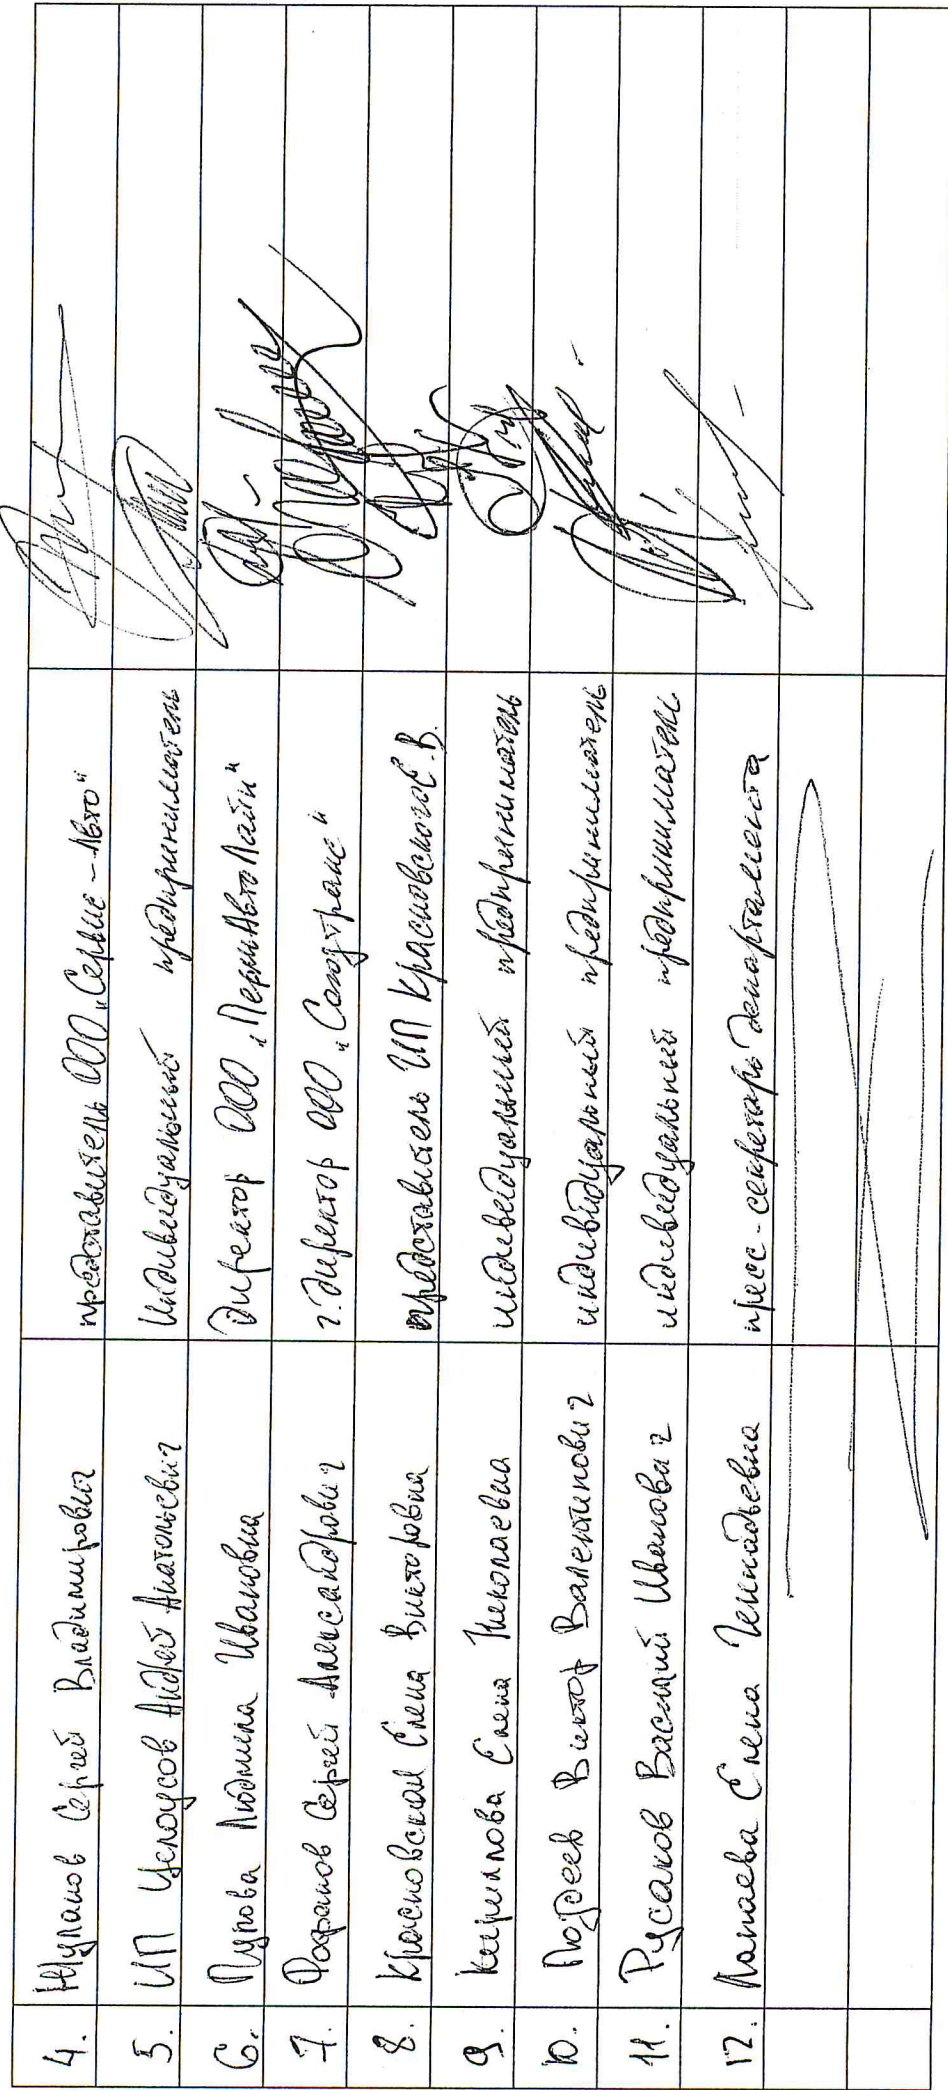 4. Жуланов Сергей Владимирович представитель ООО „Сервис-Авто“
5. ИП Целоусов Андрей Анатольевич Индивидуальный предприниматель
6. Пугова Людмила Ивановна Директор ООО „ПермАвтоЛайн“
7. Фофанов Сергей Александрович г. директор ООО „Союзтранс“
8. Красновская Елена Викторовна представитель ИП Красновского С.В.
9. Кириллова Елена Николаевна индивидуальный предприниматель
10. Поздеев Виктор Валентинович индивидуальный предприниматель
11. Русаков Василий Иванович индивидуальный предприниматель
12. Лопаева Елена Геннадьевна пресс-секретарь департамента